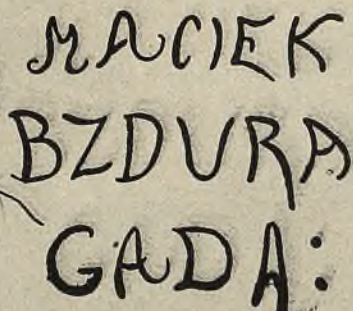 MACIEK
BZDURA
GADA: